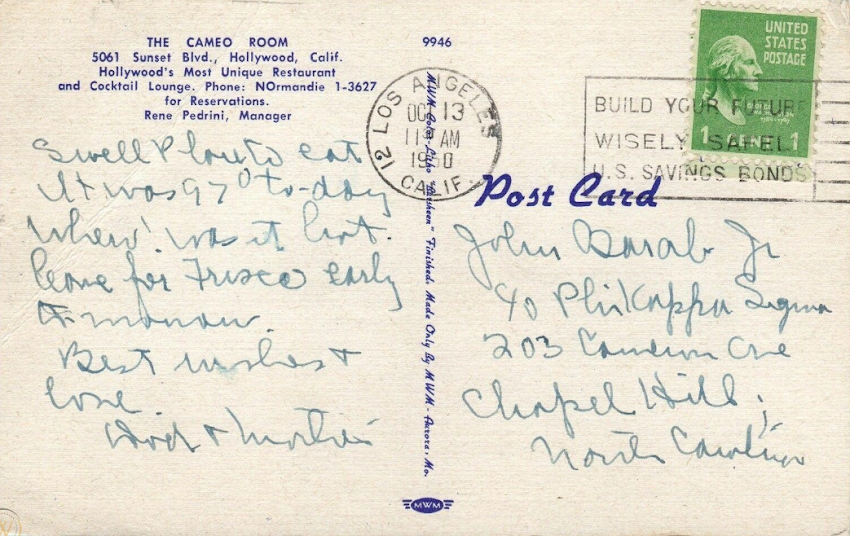 THE CAMEO ROOM
5061 Sunset Blvd., Hollywood, Calif.
Hollywood's Most Unique Restaurant
and Cocktail Lounge. Phone: NOrmandie 1-3627
for Reservations.
Rene Pedrini, Manager
9946
Swell Place to eat
It was 97° to-day
Whew! was it hot.
leave for Frisco early
tomorrow.
Best wishes +
love.
Dad + Mother
MWM Color-Litho "Plasheen" Finished, Made Only By MWM - Aurora, Mo.
MWM
LOS ANGELES
12
OCT 13
AM
1950
CALIF.
BUILD YOUR FUTURE
WISELY SAFELY
U.S. SAVINGS BONDS
UNITED
STATES
POSTAGE
1 CENT 1
Post Card
John Barab Jr
℅ Phi Kappa Sigma
203 Cameron Ave
Chapel Hill,
North Carolina